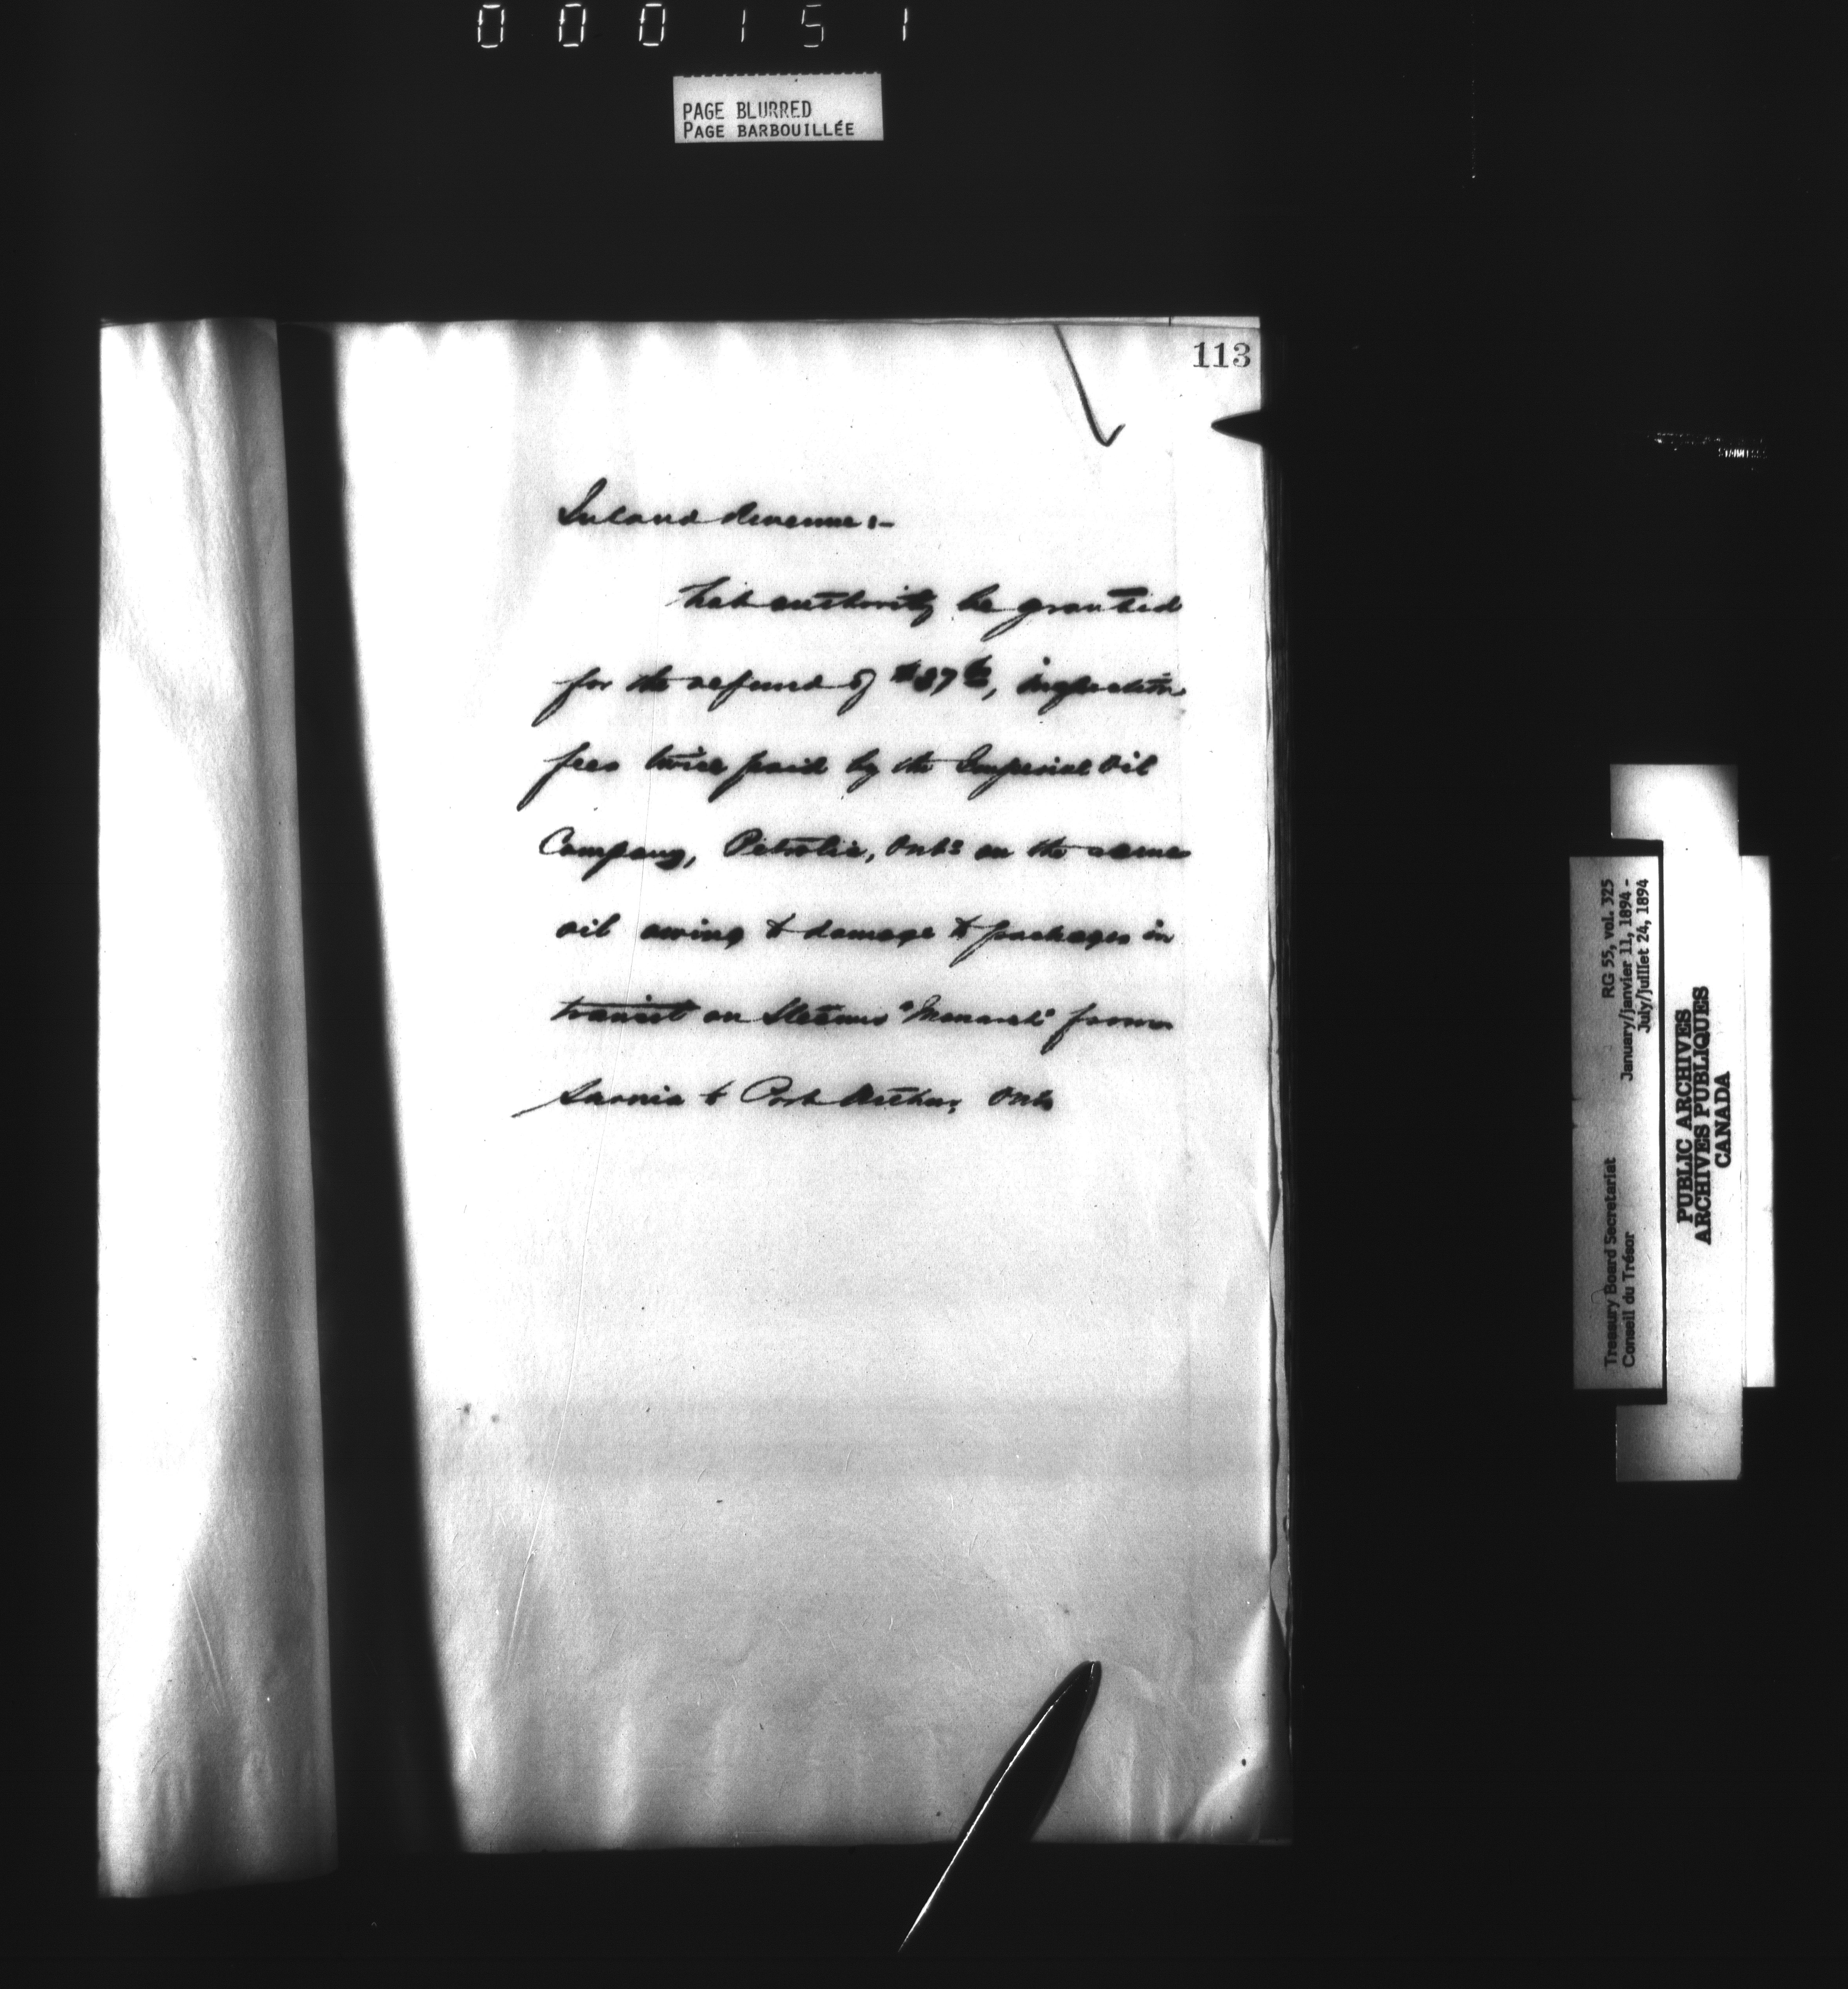 000151
PAGE BLURRED
PAGE BARBOUILLÉE
113
Inland Revenue:-
That authority be granted
for the refund of $37, inspection
fees twice paid by the Imperial Oil
Company, Petrolia, Onto on the same
oil owing to damage to packages in
transit on Steamer "Monarch" from
Sarnia to Port Arthur, Ont
RG 55, vol. 325
January/janvier 11, 1894 -
July/juillet 24, 1894
Treasury Board Secretariat
Conseil du Trésor
PUBLIC ARCHIVES
ARCHIVES PUBLIQUES
CANADA